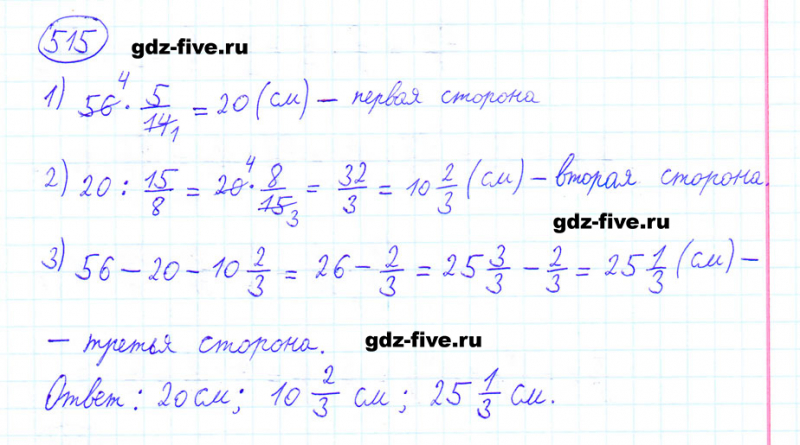 515 gdz-five.ru
1) 56 · 5/14 = 20 (см) – первая сторона
4 1
2) 20 : 15/8 = 20 · 8/15 = 32/3 = 10 2/3 (см) – вторая сторона.
4 3
gdz-five.ru
3) 56 – 20 – 10 2/3 = 26 – 2/3 = 25 3/3 – 2/3 = 25 1/3 (см) –
– третья сторона. gdz-five.ru
Ответ: 20 см; 10 2/3 см; 25 1/3 см.